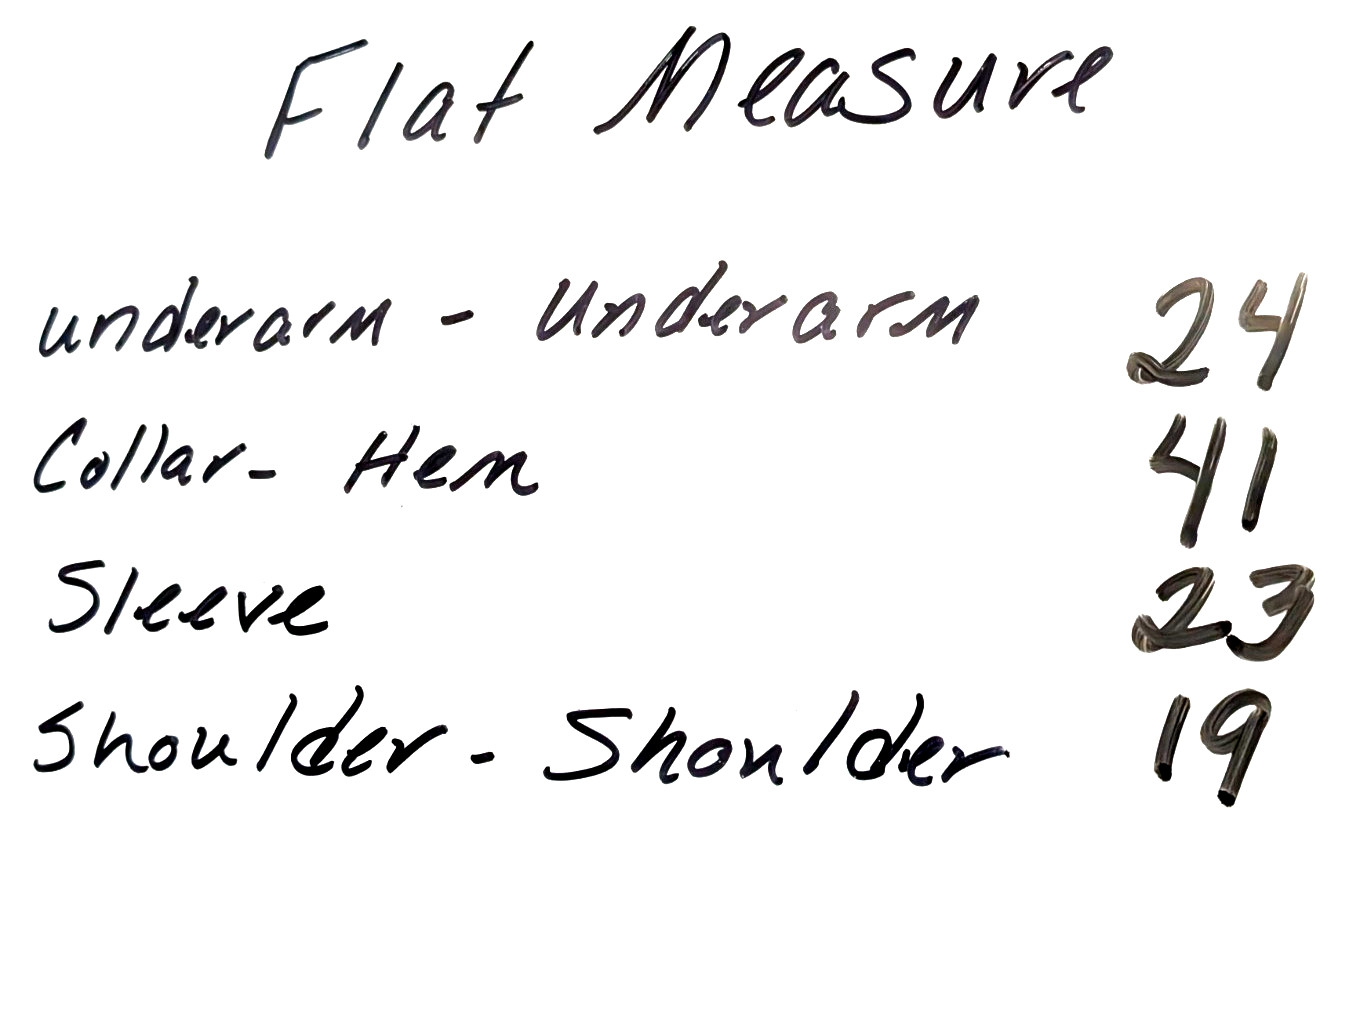 Flat Measure
underarm - Underarm 24
Collar - Hem 41
Sleeve 23
Shoulder - Shoulder 19